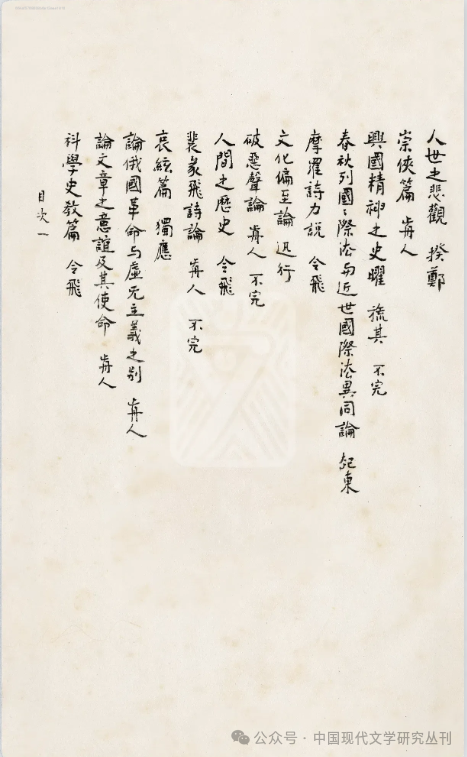 人世之悲觀 揆鄭
崇俠篇 歬人
興國精神之史曜 旒其 不完
春秋列國〻際法与近世國際法異同論 起東
摩羅詩力說 令飛
文化偏至論 迅行
破惡聲論 歬人 不完
人間之歷史 令飛
裴彖飛詩論 歬人 不完
哀絃篇 獨應
論俄國革命与虛无主義之別 歬人
論文章之意誼及其使命 歬人
科學史教篇 令飛
目次一
公众号 · 中国现代文学研究丛刊